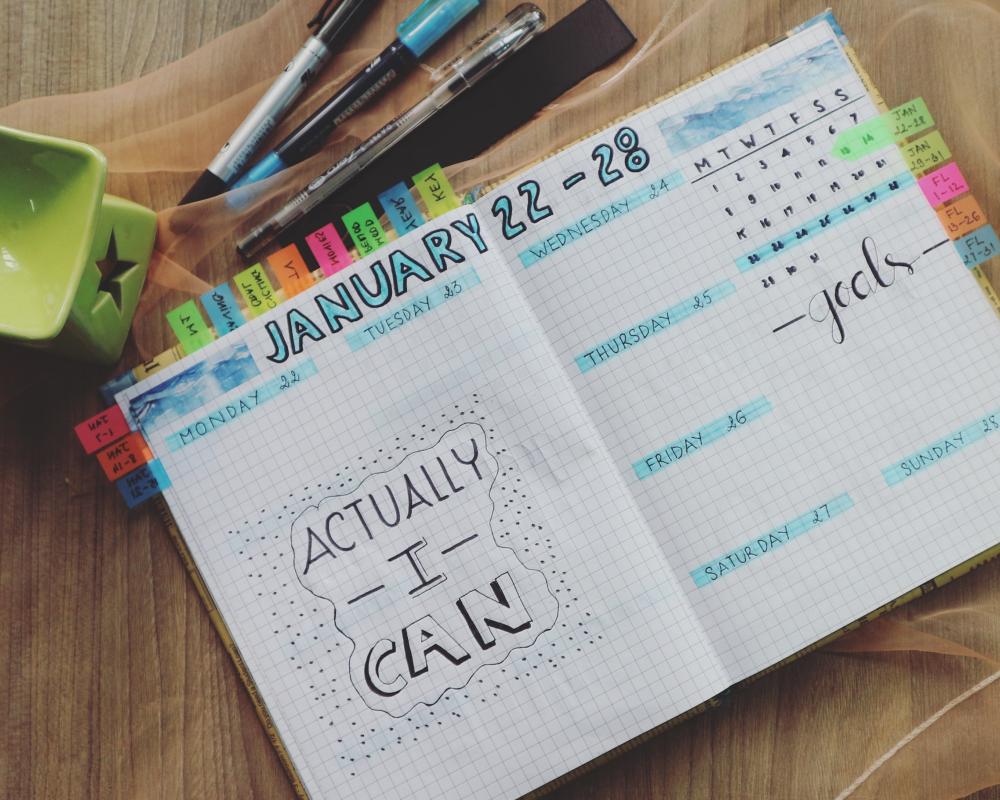 KEY
JANUARY 22-28
MONDAY 22
TUESDAY 23
ACTUALLY
-I-
CAN
WEDNESDAY 24
THURSDAY 25
FRIDAY 26
SATURDAY 27
SUNDAY 28
M T W T F S S
1 2 3 4 5 6 7
8 9 10 11 12 13 14
15 16 17 18 19 20 21
22 23 24 25 26 27 28
29 30 31
-goals-
JAN
22-28
JAN
29-31
FL
1-12
FL
13-26
FL
27-31
JAN
1-7
JAN
8-14
JAN
15-21